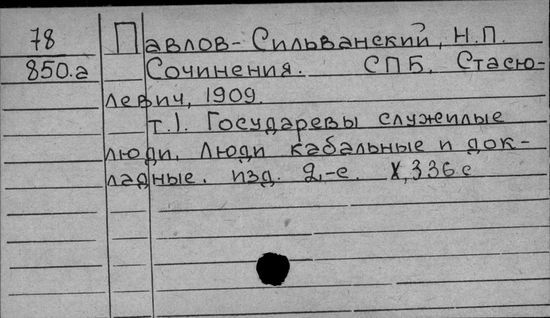 78 Павлов-Сильванский, Н.П.
850.а Сочинения. СПБ, Стасю-
левич, 1909.
т.1. Государевы служилые
люди. Люди кабальные и док-
ладные. изд. 2,-е. X, 336 с